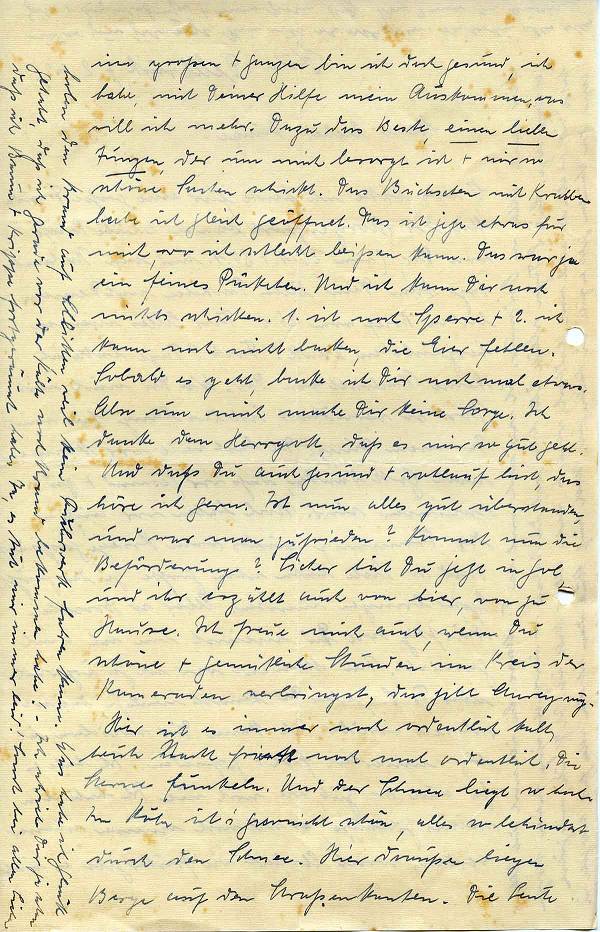 im großen + ganzen bin ich doch gesund, ich
habe, mit Deiner Hilfe mein Auskommen, was
will ich mehr. Dazu das Beste, einen lieben
Jungen der um mich besorgt ist + mir so
schöne Sachen schickt. Das Büchschen mit Krabben
habe ich gleich geöffnet. Das ist jetzt etwas für
mich, wo ich schlecht beißen kann. Das war ja
ein feines Päckchen. Und ich kann Dir noch
nichts schicken. 1. ist noch Sperre + 2. ich
kann noch nicht backen, die Eier fehlen.
Sobald es geht, backe ich Dir noch mal etwas.
Also um mich mache Dir keine Sorge. Ich
danke dem Herrgott, daß es mir so gut geht.
Und daß Du auch gesund + wohlauf bist, das
höre ich gern. Ist nun alles gut überstanden,
und war man zufrieden? Kommt nun die
Beförderung? Sicher bist Du jetzt in
und ihr erzählt auch von hier, von zu
Hause. Ich freue mich auch, wenn Du
schöne + gemütliche Stunden im Kreis der
Kameraden verbringst, das gibt Anregung.
Hier ist es immer noch ordentlich kalt,
heute Nacht friert's noch mal ordentlich, die
Sterne funkeln. Und der Schnee liegt so hoch.
In Köln ist's garnicht schön, alles so
durch den Schnee. Hier draußen liegen
Berge auf den Straßenkanten. Die Leute
holen den Brand auf Schlitten weil kein Fuhrwerk fahren kann. Was habe ich Glück
gehabt, daß ich gerade vor der Kälte noch Brand bekommen habe! - Ich schrieb Dir ja schon
daß ich Baum + Krippe fortgeräumt habe. Ja, es tut mir immer leid! Sonst bei allen